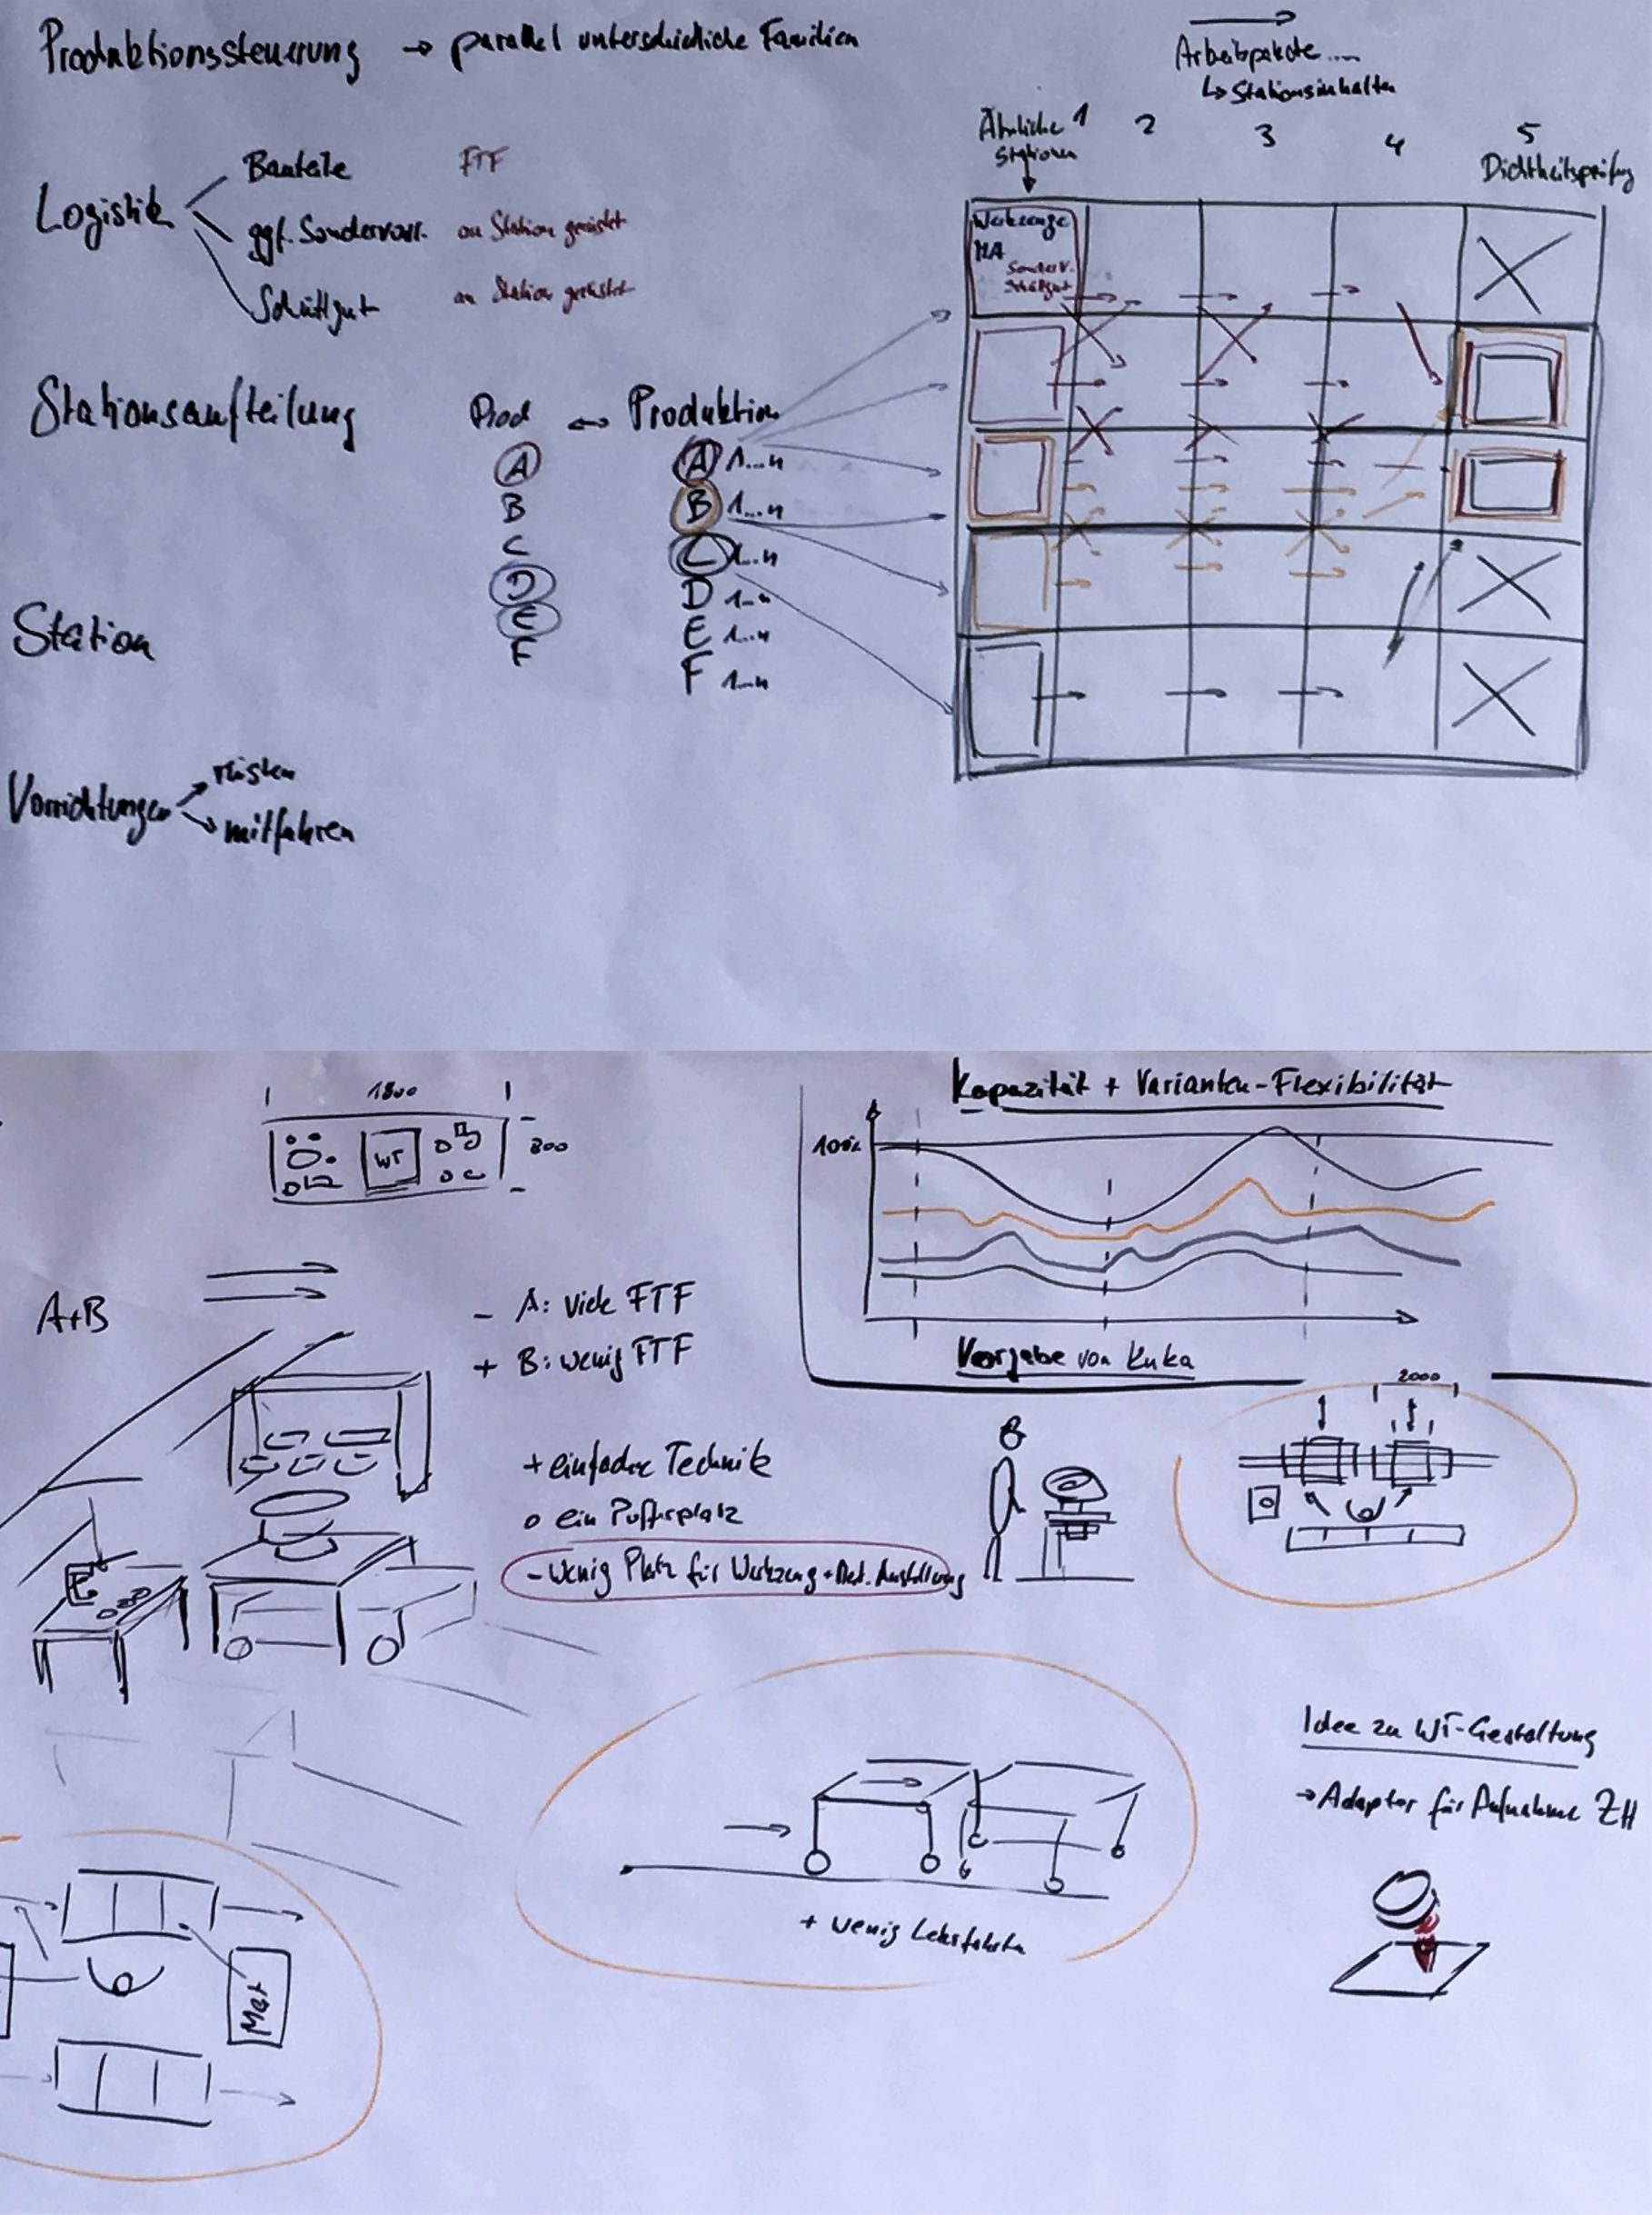 Produktionssteuerung → parallel unterschiedliche Familien
Arbeitspakete....
↳ Stationsinhalten
Ähnliche Stationen
1 2 3 4 5
Dichtheitsprüfung
Logistik
Bauteile FTF
ggf. Sondervorr. an Station gerüstet
Schüttgut an Station gerüstet
Werkzeuge
MA
Sonder V.
Schüttgut
Stationsaufteilung
Prod ↔ Produktion
A A 1...n
B B 1...n
C C 1...n
D D 1...n
E E 1...n
F F 1...n
Station
Vorrichtungen
rüsten
mitfahren
1800
WT
800
Kapazität + Varianten-Flexibilität
100%
Vorgabe von Kuka
A+B
- A: viele FTF
+ B: wenig FTF
2000
+ einfache Technik
o ein Pufferplatz
- wenig Platz für Werkzeug + Mat.
Idee zu WT-Gestaltung
→ Adapter für Aufnahme ZH
+ wenig Leerfahrten
Mat